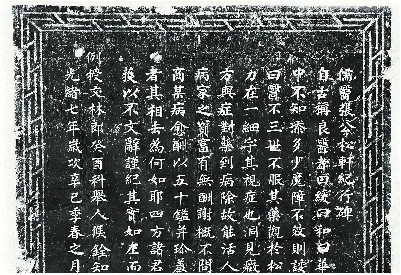 儒醫張公松軒紀行碑
自古稱良醫者曰緩曰和曰華
中不知添多少魔障不效則諉
曰醫不三世不服其藥觀於松
力在一細字其視症也洞見癥
方與症對藥到病除故能活人
病家之貧富有無酬謝概不問
商某病愈酬以五十鎰并珍羲
者其相去為何如耶四方諸君
後以不文辭謹紀其實如左而
例授文林郎癸酉科舉人候銓知
光緒七年歲次辛巳季春之月